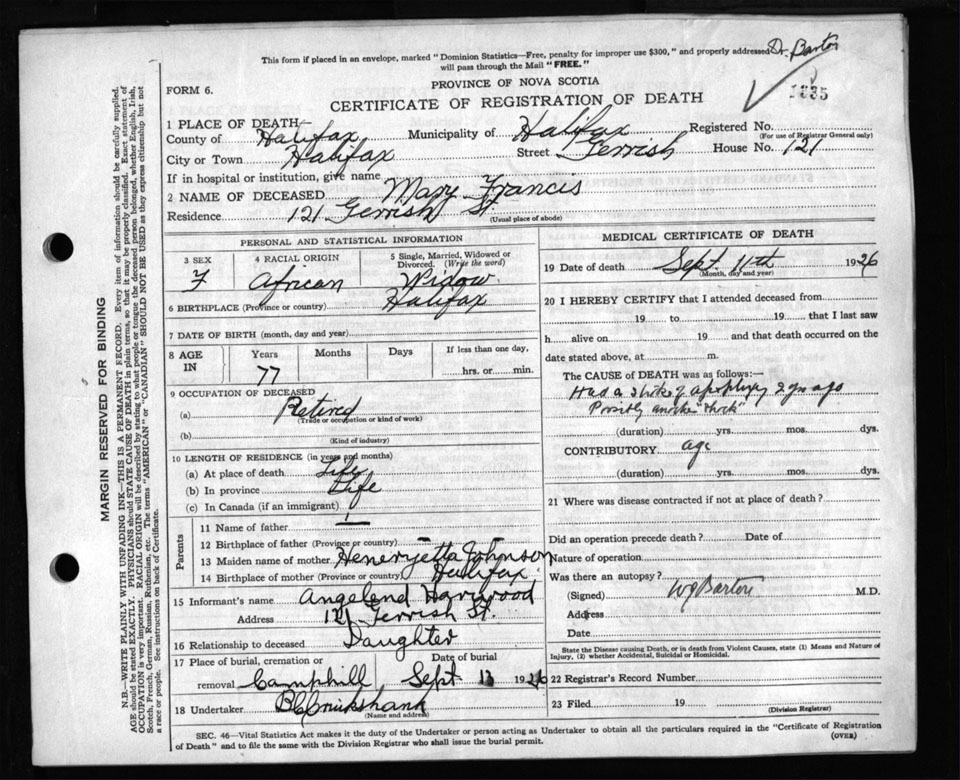 Dr. Barton
This form if placed in an envelope, marked "Dominion Statistics—Free, penalty for improper use $300," and properly addressed
will pass through the Mail "FREE."
FORM 6.
PROVINCE OF NOVA SCOTIA
CERTIFICATE OF REGISTRATION OF DEATH
1335
1 PLACE OF DEATH
County of Halifax Municipality of Halifax Registered No.
(For use of Registrar General only)
City or Town Halifax Street Gerrish House No. 121
If in hospital or institution, give name
2 NAME OF DECEASED Mary Francis
Residence 121 Gerrish St
(Usual place of abode)
MARGIN RESERVED FOR BINDING
N.B—WRITE PLAINLY WITH UNFADING INK—THIS IS A PERMANENT RECORD. Every item of information should be carefully supplied.
AGE should be stated EXACTLY. PHYSICIANS should STATE CAUSE OF DEATH in plain terms, so that it may be properly classified. Exact statement of
OCCUPATION is very important. RACIAL ORIGIN will be described by stating to what people or tongue the deceased person belonged, whether English, Irish,
Scotch, French, German, Russian, Ruthenian, etc. The terms "AMERICAN" or "CANADIAN" SHOULD NOT BE USED as they express citizenship but not
a race or people. See instructions on back of Certificate.
PERSONAL AND STATISTICAL INFORMATION
3 SEX 4 RACIAL ORIGIN 5 Single, Married, Widowed or
Divorced. (Write the word)
F African Widow
6 BIRTHPLACE (Province or country) Halifax
7 DATE OF BIRTH (month, day and year)
8 AGE IN Years Months Days If less than one day,
77 hrs. or min.
9 OCCUPATION OF DECEASED
(a) Retired
(Trade or occupation or kind of work)
(b)
(Kind of industry)
10 LENGTH OF RESIDENCE (in years and months)
(a) At place of death Life
(b) In province Life
(c) In Canada (if an immigrant)
Parents
11 Name of father
12 Birthplace of father (Province or country)
13 Maiden name of mother Heneryetta Johnson
14 Birthplace of mother (Province or country) Halifax
15 Informant's name Angelend
Address 121 Gerrish St.
16 Relationship to deceased Daughter
17 Place of burial, cremation or Date of burial
removal Camphill Sept 13 1926
18 Undertaker Cruikshank
(Name and address)
MEDICAL CERTIFICATE OF DEATH
19 Date of death Sept. 11th 1926
(Month, day and year)
20 I HEREBY CERTIFY that I attended deceased from
19 to 19 that I last saw
h alive on 19 and that death occurred on the
date stated above, at m.
The CAUSE of DEATH was as follows:—
Had a stroke of apoplexy 2 yrs ago
Possibly another "shock"
(duration) yrs. mos. dys.
CONTRIBUTORY age
(duration) yrs. mos. dys.
21 Where was disease contracted if not at place of death?
Did an operation precede death? Date of
Nature of operation
Was there an autopsy?
(Signed) Barton M.D.
Address
Date
State the Disease causing Death, or in death from Violent Causes, state (1) Means and Nature of
Injury, (2) whether Accidental, Suicidal or Homicidal.
22 Registrar's Record Number
23 Filed 19
(Division Registrar)
SEC. 46—Vital Statistics Act makes it the duty of the Undertaker or person acting as Undertaker to obtain all the particulars required in the "Certificate of Registration
of Death" and to file the same with the Division Registrar who shall issue the burial permit. (OVER)